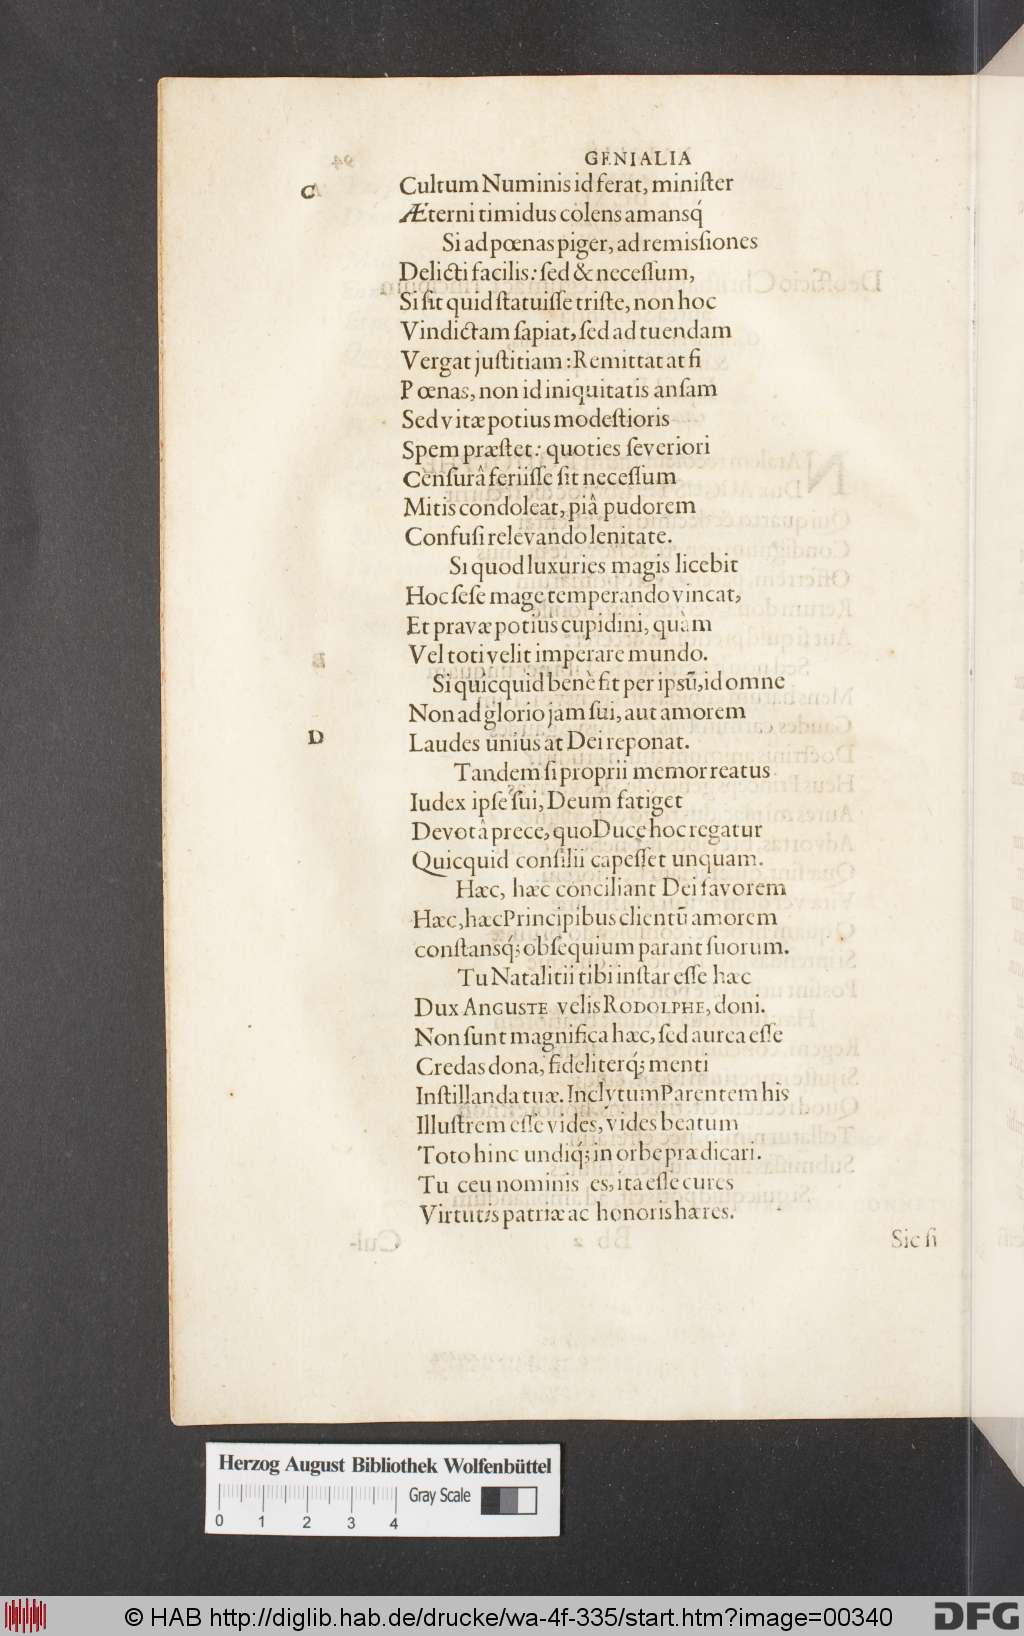 GENIALIA
C
Cultum Numinis id ferat, miniſter
Æterni timidus colens amansq́
Si ad pœnas piger, ad remiſsiones
Delicti facilis: ſed & neceſſum,
Si ſit quid ſtatuiſſe triſte, non hoc
Vindictam ſapiat, ſed ad tuendam
Vergat juſtitiam: Remittat at ſi
Pœnas, non id iniquitatis anſam
Sed vitæ potius modeſtioris
Spem præſtet: quoties ſeveriori
Cenſurâ feriiſſe ſit neceſſum
Mitis condoleat, piâ pudorem
Confuſi relevando lenitate.
Si quod luxuries magis licebit
Hoc ſeſe mage temperando vincat,
Et pravæ potius cupidini, quàm
Vel toti velit imperare mundo.
Si quicquid benè fit per ipsū, id omne
Non ad glorio jam ſui, aut amorem
D
Laudes unius at Dei reponat.
Tandem ſi proprii memor reatus
Iudex ipſe ſui, Deum fatiget
Devotâ prece, quo Duce hoc regatur
Quicquid conſilii capeſſet unquam.
Hæc, hæc conciliant Dei favorem
Hæc, hæc Principibus clientū amorem
conſtansq́; obſequium parant ſuorum.
Tu Natalitii tibi inſtar eſſe hæc
Dux ANGUSTE velis RODOLPHE, doni.
Non ſunt magnifica hæc, ſed aurea eſſe
Credas dona, fideliterq́; menti
Inſtillanda tuæ. Inclytum Parentem his
Illuſtrem eſſe vides, vides beatum
Toto hinc undiq́; in orbe prædicari.
Tu ceu nominis es, ita eſſe cures
Virtutis patriæ ac honoris hæres.
Sic ſi
Herzog August Bibliothek Wolfenbüttel
Gray Scale
0 1 2 3 4
© HAB http://diglib.hab.de/drucke/wa-4f-335/start.htm?image=00340
DFG